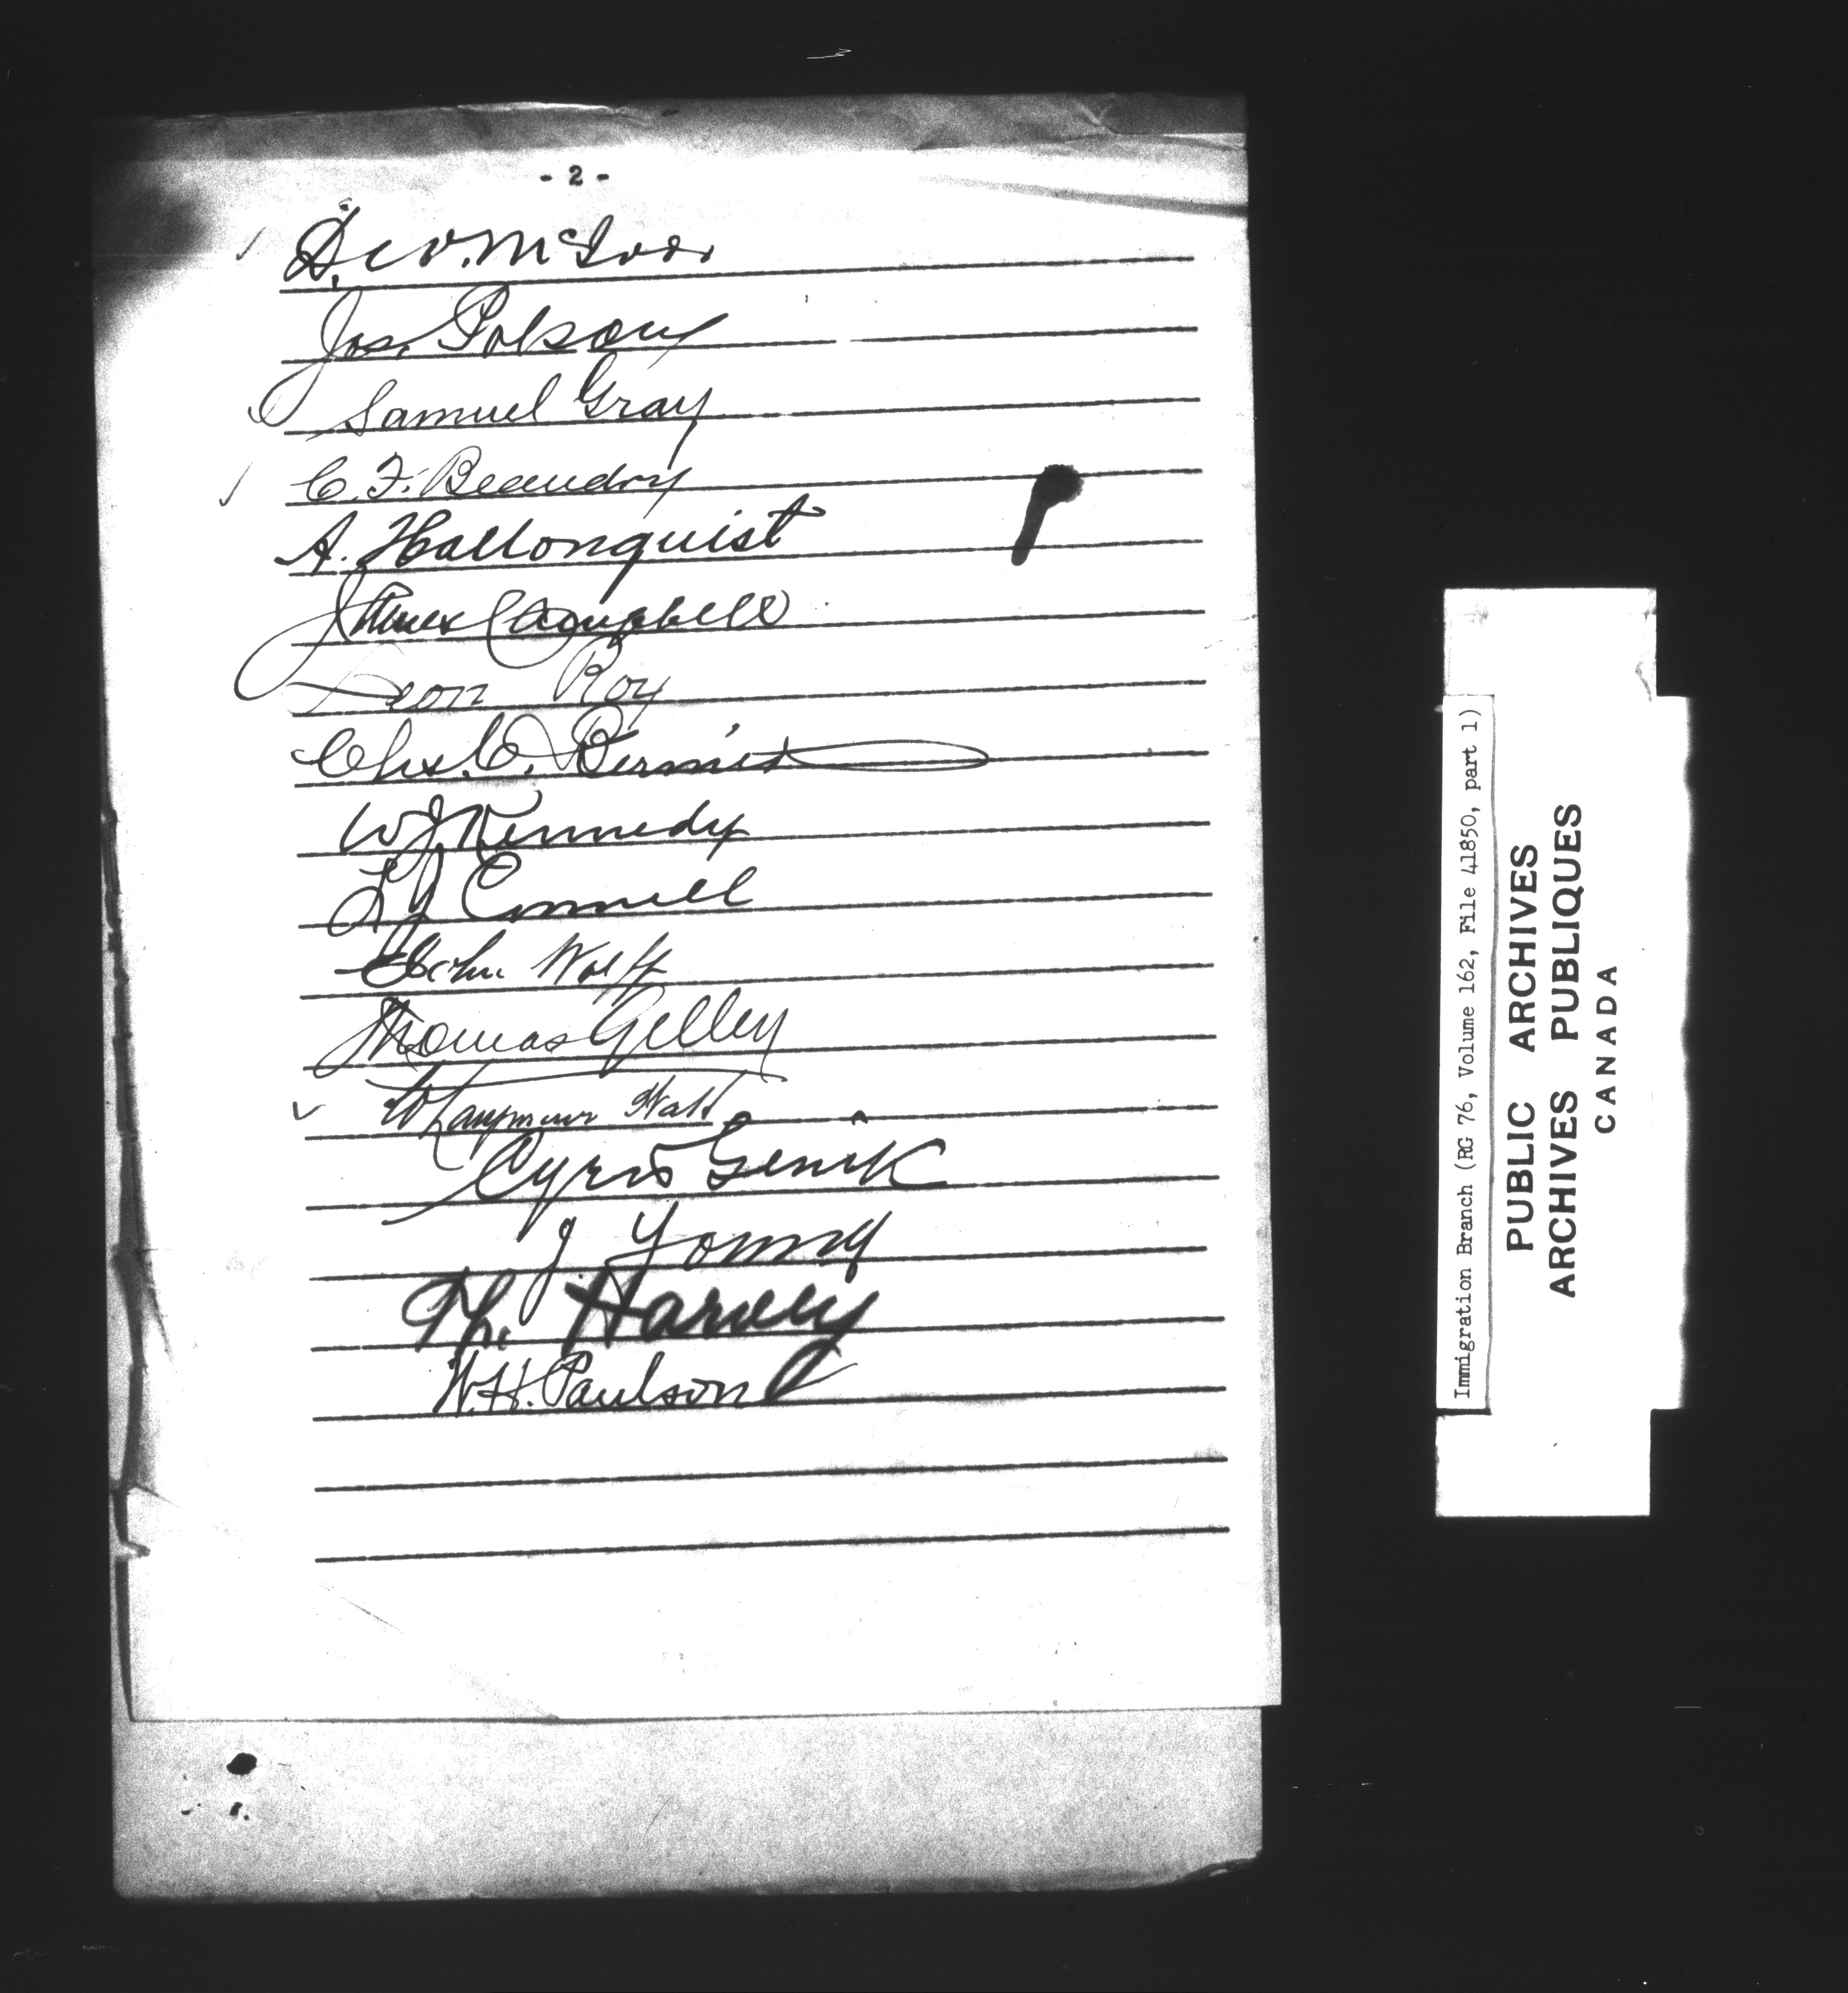 - 2 -
D. McIvor
Jos. Polson
Samuel Gray
C. F. Beaudry
A. Hallonquist
James Campbell
Leon Roy
Chs. O. Bernier
W J Kennedy
L J Connell
John Wolff
Thomas Gelley
W
Cyril Genik
J Young
Th. Harvey
W. H. Paulson
Immigration Branch (RG 76, Volume 162, File 41850, part 1)
PUBLIC ARCHIVES
ARCHIVES PUBLIQUES
CANADA